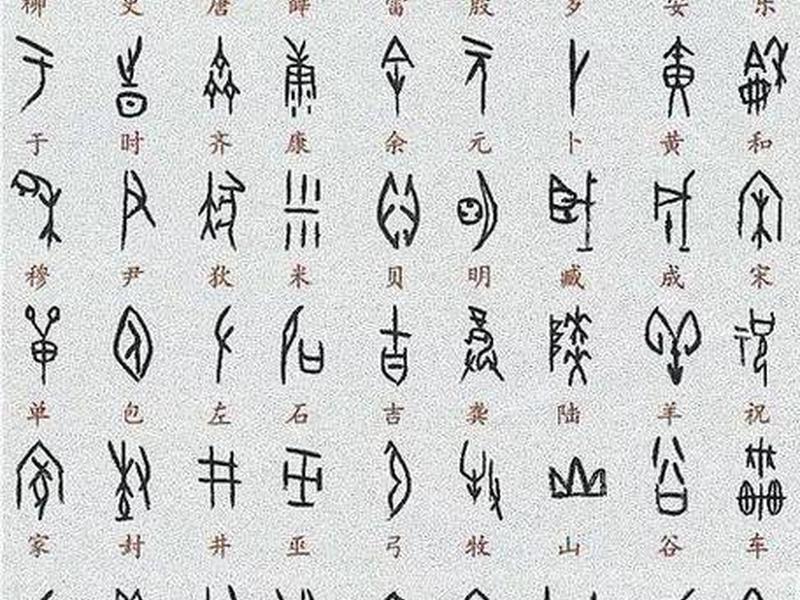 柳 史 唐 薛 雷 殷 罗 安 乐
于 时 齐 康 余 元 卜 黄 和
穆 尹 狄 米 贝 明 臧 成 宋
单 包 左 石 吉 龚 陆 羊 祝
家 封 井 巫 弓 牧 山 谷 车